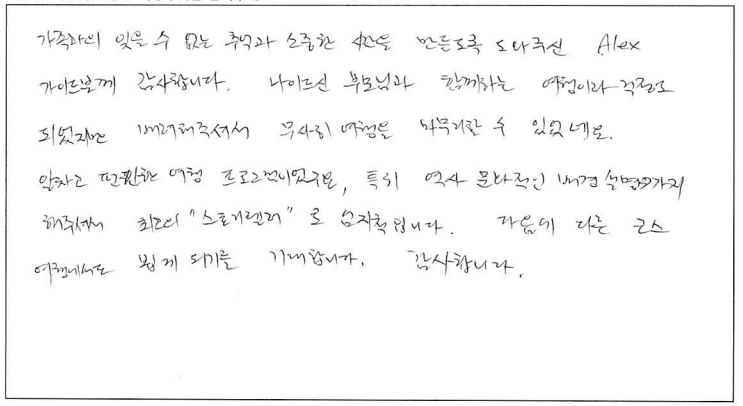 가족과의 잊을 수 없는 추억과 소중한 시간을 만들도록 도와주신 Alex
가이드분께 감사합니다. 나이드신 부모님과 함께하는 여행이라 걱정도
되었지만 배려해주셔서 무사히 여행을 마무리할 수 있었네요.
알차고 편안한 여행 프로그램이었구요, 특히 역사 문화적인 배경 설명까지
해주셔서 최고의 "스토리텔러"로 엄지척입니다. 다음에 다른 코스
여행에서도 뵙게 되기를 기대합니다. 감사합니다.